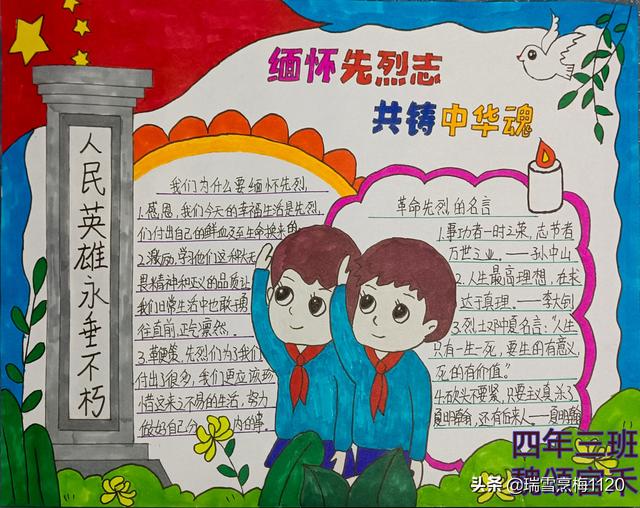 缅怀先烈志
共铸中华魂
人民英雄永垂不朽
我们为什么要缅怀先烈
1.感恩,我们今天的幸福生活是先烈
们付出自己的鲜血乃至生命换来的
2.激励,学习他们这种大无
畏精神和正义的品质让
我们日常生活中也敢于勇
往直前,正气凛然。
3.鞭策,先烈们为了我们
付出了很多,我们更应该珍
惜这来之不易的生活,努力
做好自己分内的事。
革命先烈的名言
1.事功者一时之荣,志节者
万世之业。——孙中山
2.人生最高理想,在求
达于真理。——李大钊
3.烈士邓中夏名言:"人生
只有一生一死,要生的有意义,
死的有价值。"
4.砍头不要紧,只要主义真,杀了
夏明翰,还有后来人。——夏明翰
四年二班
头条 @瑞雪烹梅1120